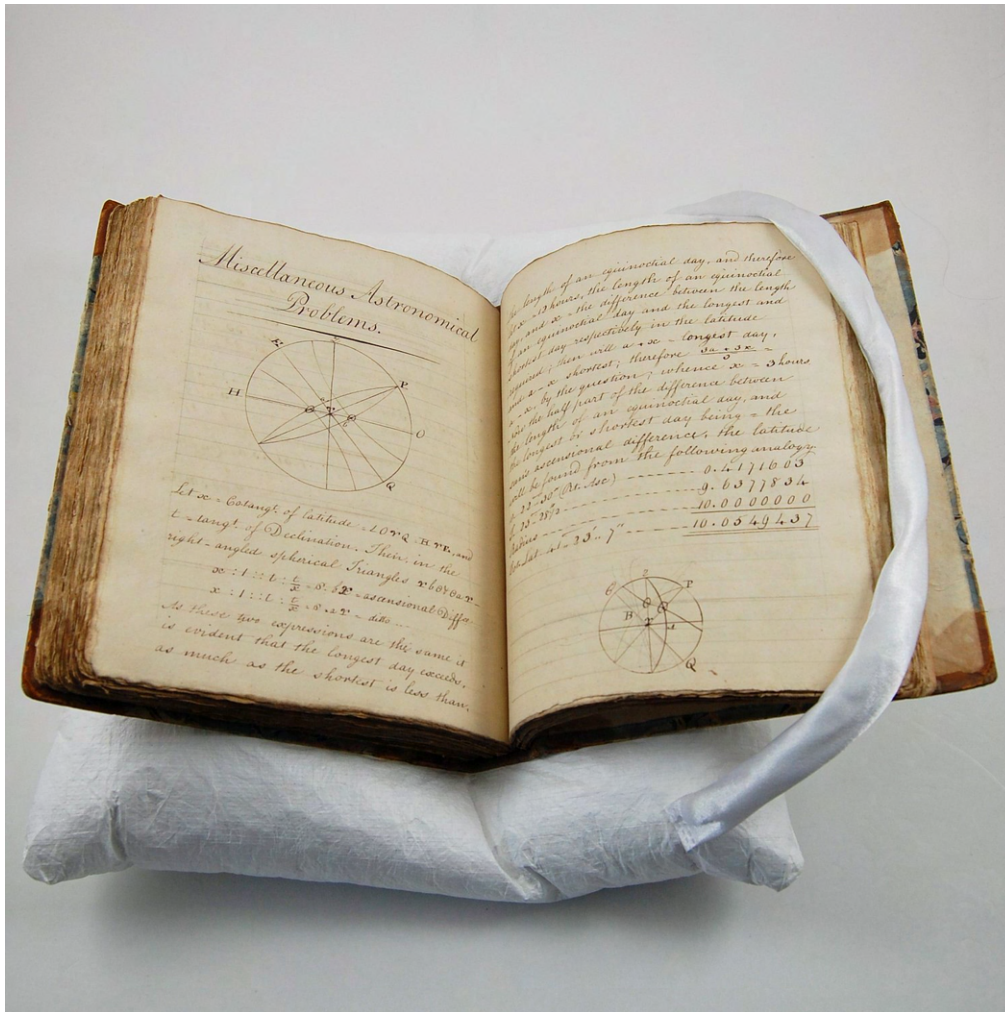 Miscellaneous Astronomical
Problems.
P
H
O
Q
Let x = Cotangt. of latitude
t = tangt. of Declination. Then in the
right-angled spherical Triangles
x : 1 :: t : t/x = ascensional Diffce.
x : 1 :: t : t/x = ditto
As these two expressions are the same it
is evident that the longest day exceeds,
as much as the shortest is less than,
length of an equinoctial day, and therefore
hours, the length of an equinoctial
day, and x = the difference between the length
of an equinoctial day and the longest and
shortest day respectively in the latitude
required; then will a + x = longest day,
and a - x shortest; therefore
a - x, by the question; whence x = 3 hours
the half part of the difference between
the length of an equinoctial day, and
the longest or shortest day being = the
ascensional difference, the latitude
will be found from the following analogy.
22°-30' (Rt. Asc) 0.4171603
23°-28½ 9.6377834
Radius 10.0000000
Lat 41°-23'-7" 10.0549437
P
H
Q